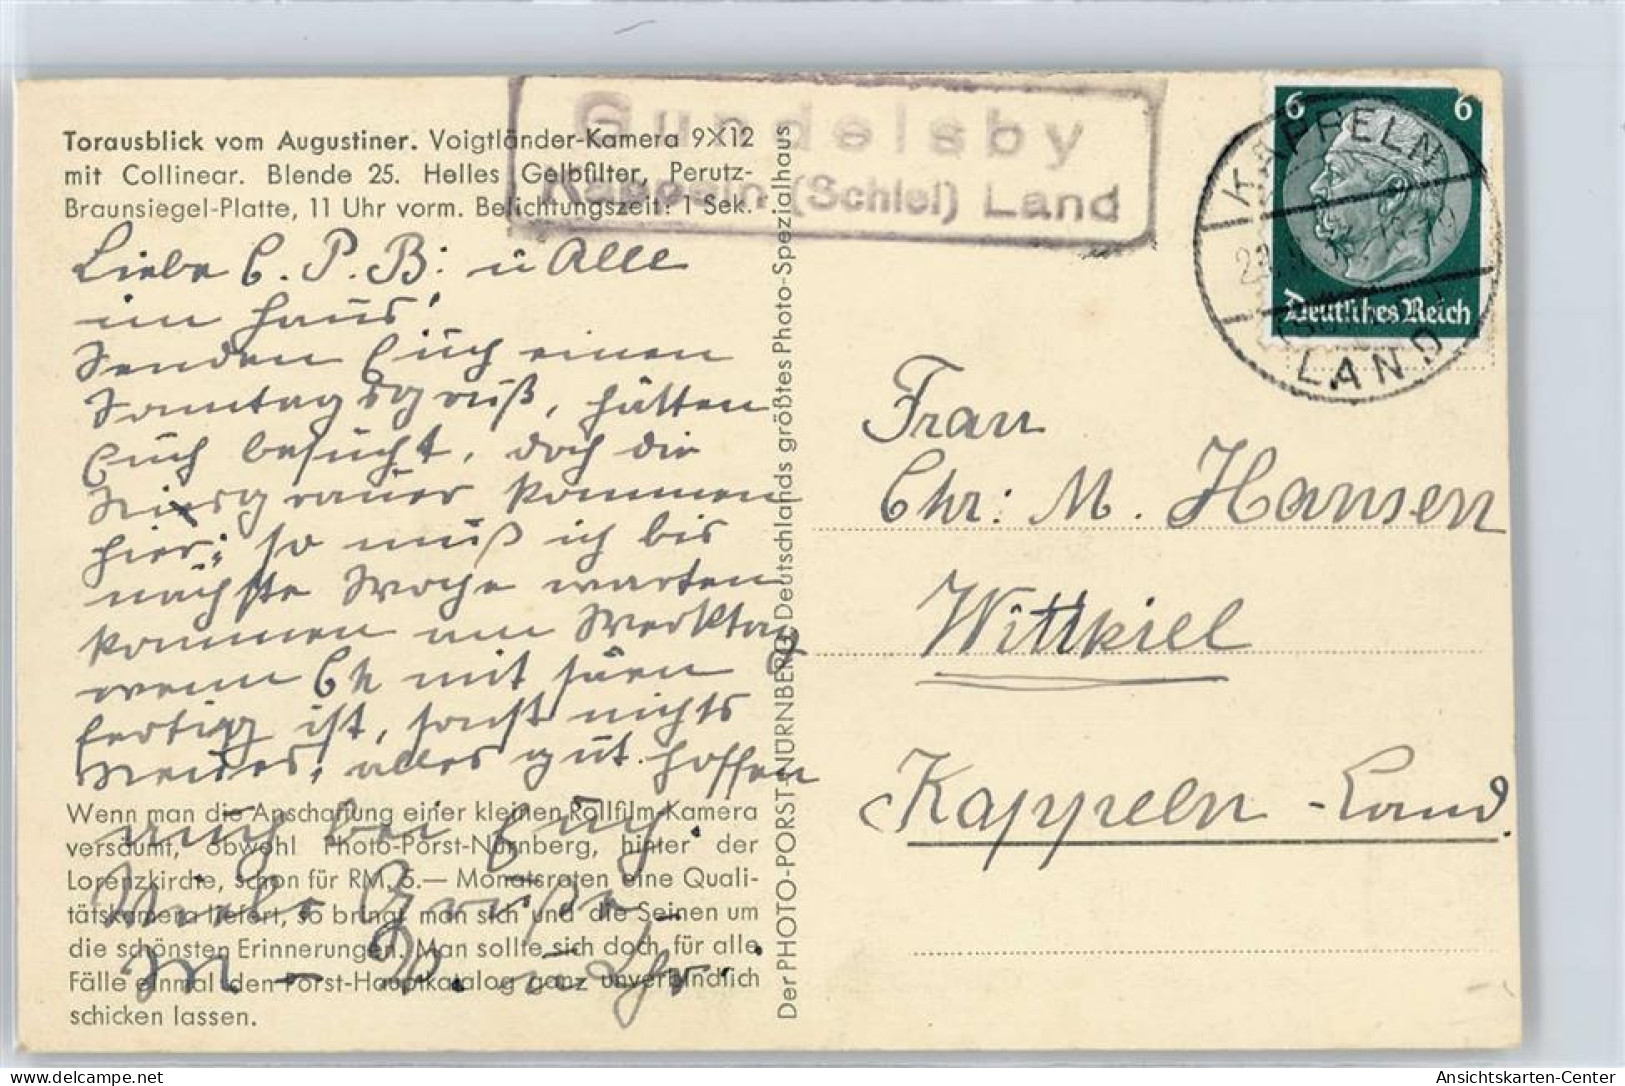 Torausblick vom Augustiner. Voigtländer-Kamera 9X12
mit Collinear. Blende 25. Helles Gelbfilter, Perutz-
Braunsiegel-Platte, 11 Uhr vorm. Belichtungszeit: 1 Sek.
Gundelsby
Kappeln (Schlei) Land
6 6
Deutsches Reich
KAPPELN
LAND
Liebe C. P. B: u Alle
im Haus!
Senden Euch einen
Sonntagsgruß, hätten
Euch besucht, doch die
kommen
hier; so muß ich bis
nächste Woche warten
kommen am Werktag
wenn Ch mit
fertig ist, sonst nichts
Neues, alles gut. hoffen
auch bei Euch.
Viele Grüße
M – u Chr.
Wenn man die Anschaffung einer kleinen Rollfilm-Kamera
versäumt, obwohl Photo-Porst-Nürnberg, hinter der
Lorenzkirche, schon für RM. 5.— Monatsraten eine Quali-
tätskamera liefert, so bringt man sich und die Seinen um
die schönsten Erinnerungen. Man sollte sich doch für alle
Fälle einmal den Porst-Hauptkatalog ganz unverbindlich
schicken lassen.
Der PHOTO-PORST-NÜRNBERG, Deutschlands größtes Photo-Spezialhaus
Frau
Chr: M. Hansen
Wittkiel
Kappeln-Land.
Ansichtskarten-Center
https://www.ansichtskarten-center.de/